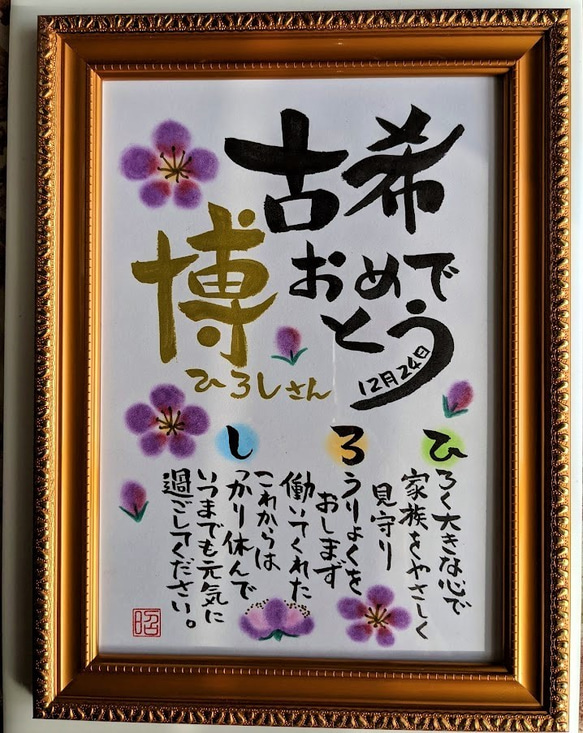 古希
おめでとう
12月24日
博
ひろしさん
ひろく大きな心で
家族をやさしく
見守り
ろうりょくを
おしまず
働いてくれた
これからは
しっかり休んで
いつまでも元気に
過ごしてください。
昭